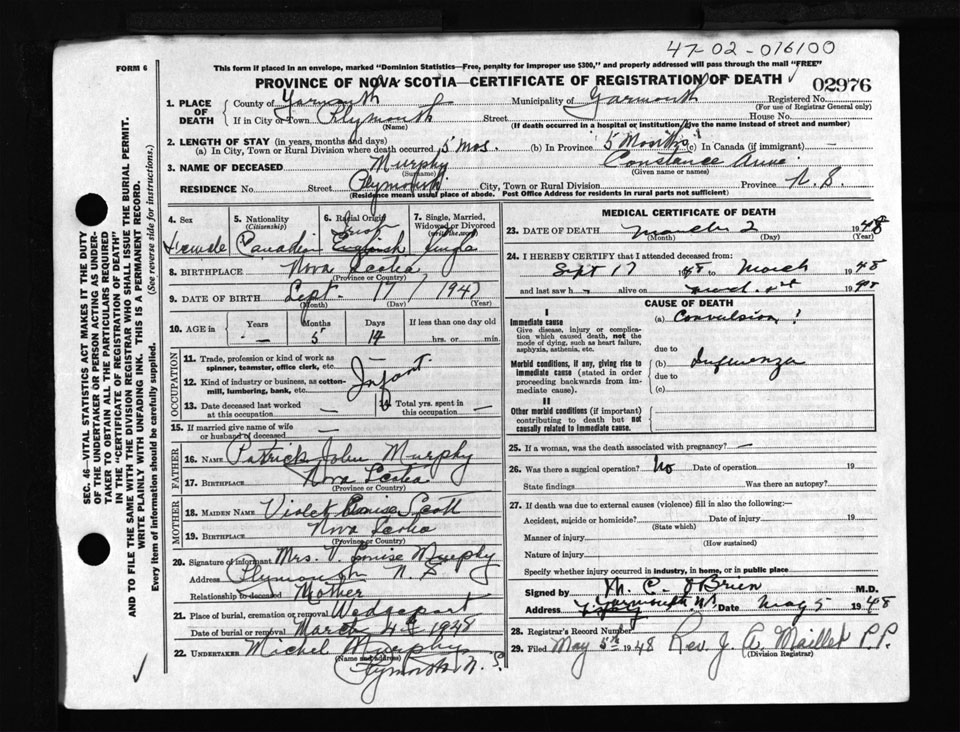 47-02-016100
FORM 6
This form if placed in an envelope, marked "Dominion Statistics—Free, penalty for improper use $300," and properly addressed will pass through the mail "FREE"
PROVINCE OF NOVA SCOTIA—CERTIFICATE OF REGISTRATION OF DEATH
02976
1. PLACE OF DEATH
County of Yarmouth Municipality of Yarmouth Registered No.
(For use of Registrar General only)
If in City or Town Plymouth Street House No.
(Name) (If death occurred in a hospital or institution, give the name instead of street and number)
2. LENGTH OF STAY (in years, months and days)
(a) In City, Town or Rural Division where death occurred 5 mos. (b) In Province 5 Months (c) In Canada (if immigrant) —
3. NAME OF DECEASED Murphy Constance Anne
(Surname) (Given name or names)
RESIDENCE No. Street Plymouth City, Town or Rural Division Province N.S.
(Residence means usual place of abode. Post Office Address for residents in rural parts not sufficient)
4. Sex Female
5. Nationality (Citizenship) Canadian
6. Racial Origin Irish English
7. Single, Married, Widowed or Divorced (write the word) Single
8. BIRTHPLACE Nova Scotia
(Province or Country)
9. DATE OF BIRTH Sept. 17 1947
(Month) (Day) (Year)
10. AGE in Years — Months 5 Days 14 If less than one day old
hrs. or min.
OCCUPATION
11. Trade, profession or kind of work as spinner, teamster, office clerk, etc. —
12. Kind of industry or business, as cotton-mill, lumbering, bank, etc. Infant
13. Date deceased last worked at this occupation —
14. Total yrs. spent in this occupation —
15. If married give name of wife or husband of deceased —
FATHER
16. NAME Patrick John Murphy
17. BIRTHPLACE Nova Scotia
(Province or Country)
MOTHER
18. MAIDEN NAME Violet Louise Scott
19. BIRTHPLACE Nova Scotia
(Province or Country)
20. Signature of informant Mrs. V. Louise Murphy
Address Plymouth N.S
Relationship to deceased Mother
21. Place of burial, cremation or removal Wedgeport
Date of burial or removal March 4th 1948
22. UNDERTAKER Michel Murphy
(Name and address)
Plymouth N.S.
MEDICAL CERTIFICATE OF DEATH
23. DATE OF DEATH March 2 1948
(Month) (Day) (Year)
24. I HEREBY CERTIFY that I attended deceased from:
Sept 17 1948 to March 1948
and last saw h alive on 1948
CAUSE OF DEATH
I
Immediate cause
Give disease, injury or complication which caused death, not the mode of dying, such as heart failure, asphyxia, asthenia, etc.
(a) Convulsion !
due to
Morbid conditions, if any, giving rise to immediate cause (stated in order proceeding backwards from immediate cause).
(b) Influenza
due to
(c)
II
Other morbid conditions (if important) contributing to death but not causally related to immediate cause.
25. If a woman, was the death associated with pregnancy? —
26. Was there a surgical operation? No Date of operation 19
State findings Was there an autopsy?
27. If death was due to external causes (violence) fill in also the following:—
Accident, suicide or homicide? Date of injury 19
(State which)
Manner of injury
(How sustained)
Nature of injury
Specify whether injury occurred in industry, in home, or in public place
Signed by M. C. O'Brien M.D.
Address Yarmouth NS Date May 5 1948
28. Registrar's Record Number
29. Filed May 5th 1948 Rev. J. A. Maillet P.P.
(Division Registrar)
SEC. 46—VITAL STATISTICS ACT MAKES IT THE DUTY
OF THE UNDERTAKER OR PERSON ACTING AS UNDER-
TAKER TO OBTAIN ALL THE PARTICULARS REQUIRED
IN THE "CERTIFICATE OF REGISTRATION OF DEATH"
AND TO FILE THE SAME WITH THE DIVISION REGISTRAR WHO SHALL ISSUE THE BURIAL PERMIT.
WRITE PLAINLY WITH UNFADING INK. THIS IS A PERMANENT RECORD.
Every item of information should be carefully supplied. (See reverse side for instructions.)